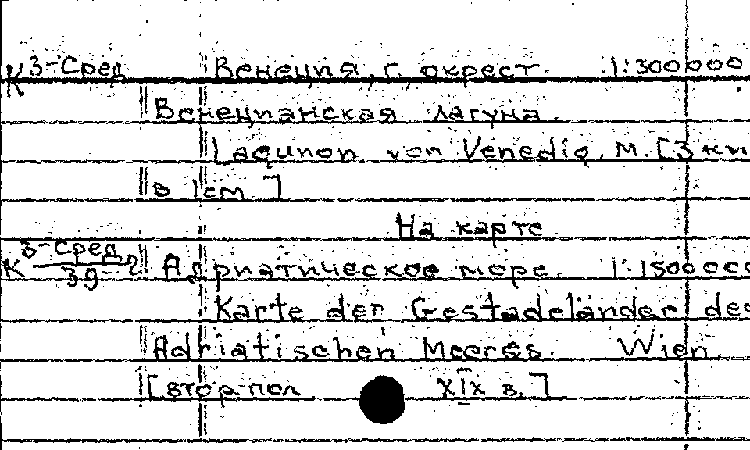 К 3-Сред Венеция, г. окрест. 1:300000
Венецианская лагуна.
Lagunon von Venedig. М. [3 км
в 1см]
На карте
К 3-Сред/39 Адриатическое море. 1:1500000
Karte der Gestadeländer des
Adriatischen Meeres. Wien.
[втор. пол. XIX в.]